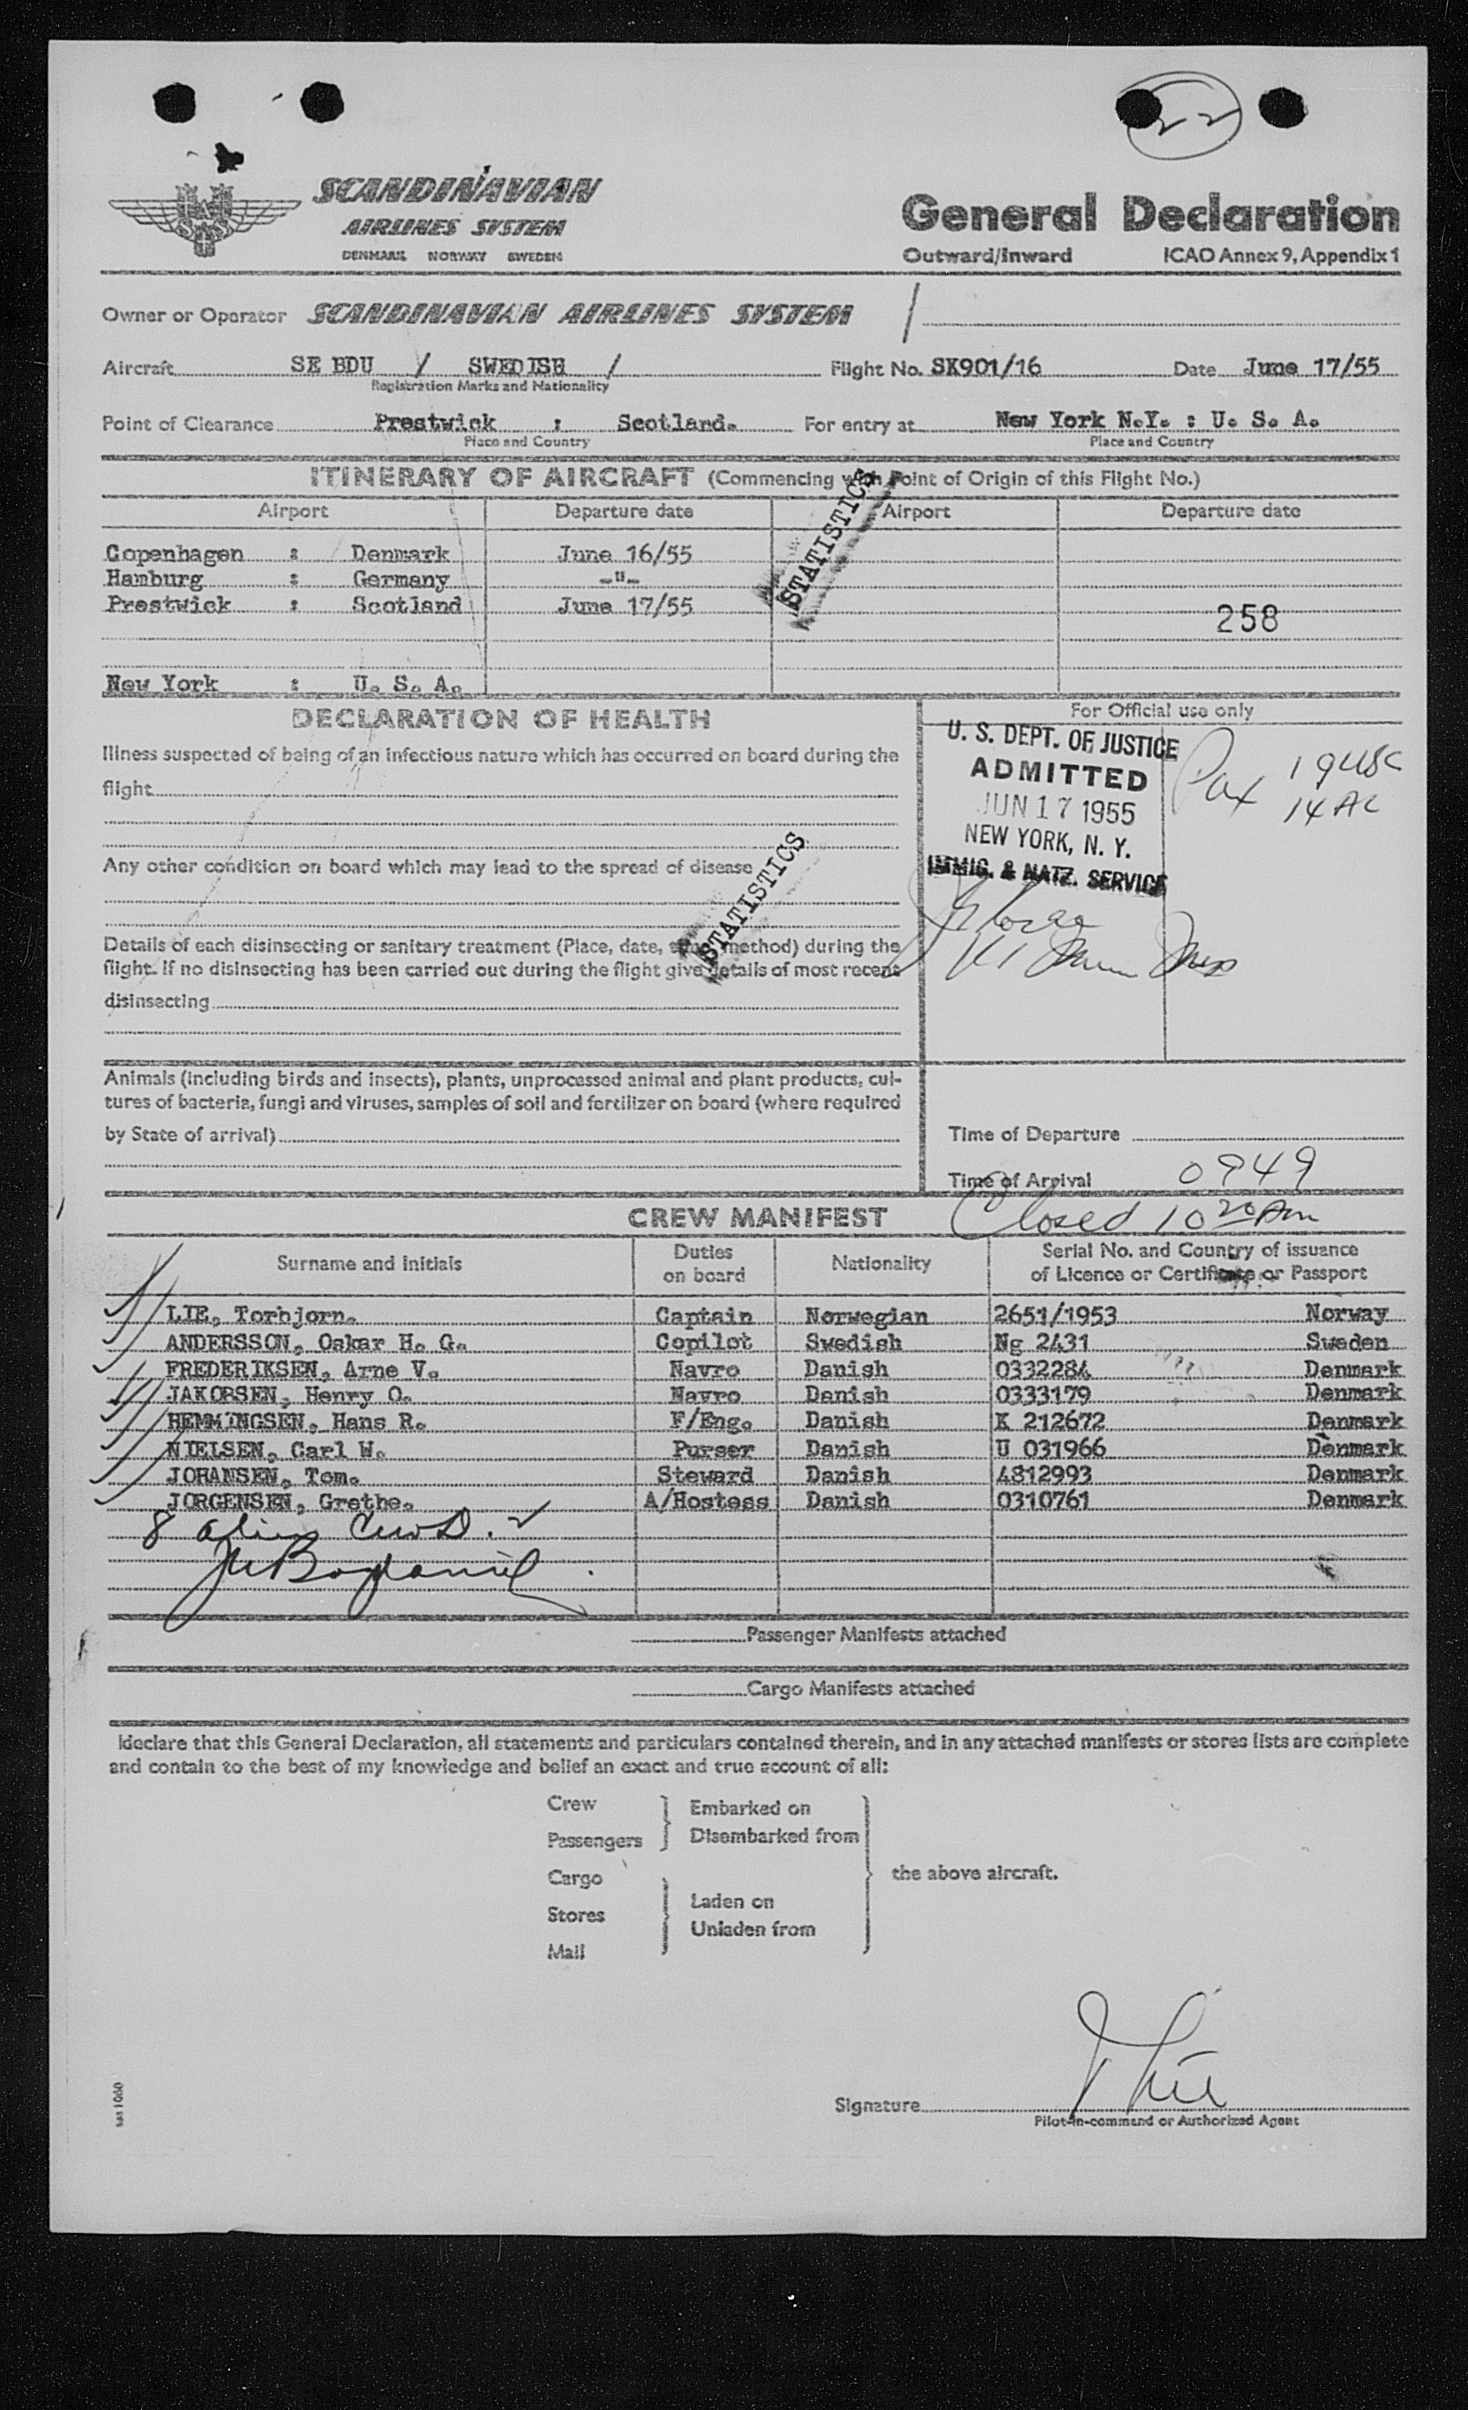 22
SCANDINAVIAN
AIRLINES SYSTEM
DENMARK NORWAY SWEDEN
General Declaration
Outward/Inward ICAO Annex 9, Appendix 1
Owner or Operator SCANDINAVIAN AIRLINES SYSTEM /
Aircraft SE BDU / SWEDISH / Flight No. SK901/16 Date June 17/55
Registration Marks and Nationality
Point of Clearance Prestwick : Scotland. For entry at New York N.Y. : U. S. A.
Place and Country Place and Country
ITINERARY OF AIRCRAFT (Commencing with Point of Origin of this Flight No.)
Airport Departure date Airport Departure date
STATISTICS
Copenhagen : Denmark June 16/55
Hamburg : Germany -"-
Prestwick : Scotland June 17/55
258
New York : U. S. A.
DECLARATION OF HEALTH
For Official use only
Illness suspected of being of an infectious nature which has occurred on board during the
flight
U. S. DEPT. OF JUSTICE
ADMITTED
JUN 17 1955
NEW YORK, N. Y.
IMMIG. & NATZ. SERVICE
Pax 19 USC
14 AC
Any other condition on board which may lead to the spread of disease
STATISTICS
Details of each disinsecting or sanitary treatment (Place, date, time, method) during the
flight. If no disinsecting has been carried out during the flight give details of most recent
disinsecting
Animals (including birds and insects), plants, unprocessed animal and plant products, cul-
tures of bacteria, fungi and viruses, samples of soil and fertilizer on board (where required
by State of arrival)
Time of Departure
Time of Arrival 0949
Closed 10 20 Am
CREW MANIFEST
Surname and initials Duties on board Nationality Serial No. and Country of issuance of Licence or Certificate or Passport
LIE, Torbjorn. Captain Norwegian 2651/1953 Norway
ANDERSSON, Oskar H. G. Copilot Swedish Ng 2431 Sweden
FREDERIKSEN, Arne V. Navro Danish 0332284 Denmark
JAKOBSEN, Henry O. Navro Danish 0333179 Denmark
HEMMINGSEN, Hans R. F/Eng. Danish K 212672 Denmark
NIELSEN, Carl W. Purser Danish U 031966 Denmark
JOHANSEN, Tom. Steward Danish 4812993 Denmark
JORGENSEN, Grethe. A/Hostess Danish 0310761 Denmark
8 alien
Passenger Manifests attached
Cargo Manifests attached
I declare that this General Declaration, all statements and particulars contained therein, and in any attached manifests or stores lists are complete
and contain to the best of my knowledge and belief an exact and true account of all:
Crew
Passengers
Embarked on
Disembarked from
Cargo
Stores
Mail
Laden on
Unladen from
the above aircraft.
Signature
Pilot-in-command or Authorized Agent
sas 1060